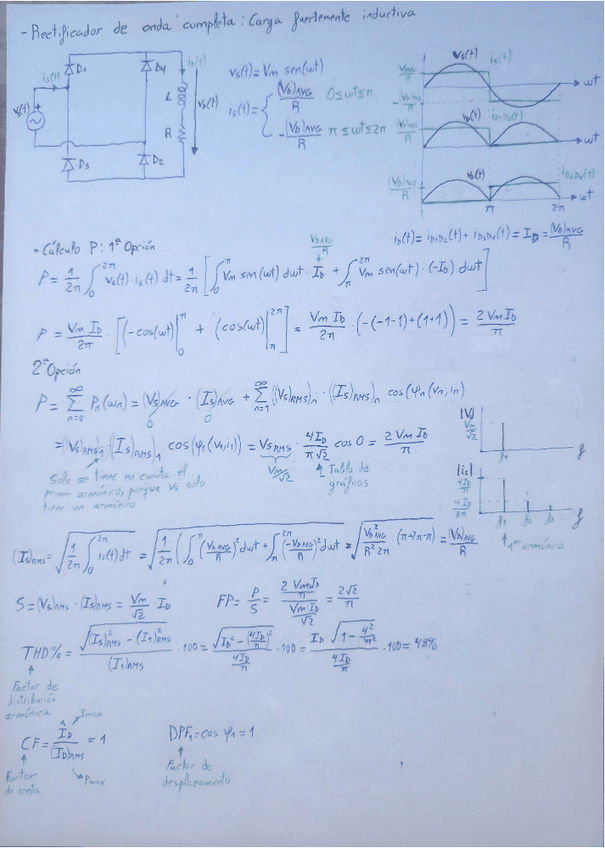 - Rectificador de onda completa: Carga fuertemente inductiva
is(t) D1 D4 iD(t)
vs(t) L vD(t)
R
D3 D2
vs(t) = Vm sen(ωt)
is(t) = { (VD)AVG/R 0≤ωt≤π
-(VD)AVG/R π≤ωt≤2π
vs(t) is(t)
ωt
vD(t) iD1D2(t)
(VD)AVG/R
ωt
vD(t) iD3D4(t)
(VD)AVG/R
ωt
π 2π
iD(t) = iD1D2(t) + iD3D4(t) = ID = (VD)AVG/R
• Cálculo P: 1ª Opción
P = 1/2π ∫0^2π vs(t)·is(t) dt = 1/2π [∫0^π Vm sen(ωt) dωt · ID + ∫π^2π Vm sen(ωt)·(-ID) dωt]
P = Vm ID/2π · [(-cos(ωt)|0^π + (cos(ωt)|π^2π] = Vm ID/2π · (-(-1-1)+(1+1)) = 2VmID/π
2ª Opción
P = Σn=0^∞ Pn(ωn) = (Vs)AVG · (Is)AVG + Σn=1^∞ ((Vs)RMS)n · ((Is)RMS)n cos(φn(vn,in)
0 0
= ((Vs)RMS)1 · ((Is)RMS)1 cos(φ1(v1,i1)) = VsRMS · 4ID/π√2 cos 0 = 2VmID/π
Vm/√2
Tabla de
gráficas
Solo se tiene en cuenta el
primer armónico, porque vs solo
tiene un armónico
|V|
Vm/√2
f1 f
|is|
4ID/π
4ID/3π
f1 f2 f3 f
1er armónico
(Is)RMS = √(1/2π ∫0^2π is(t) dt) = √(1/2π (∫0^π (VDAVG/R)² dωt + ∫π^2π (-VDAVG/R)² dωt = √(VD²AVG/R²2π · (π+2π-π)) = (VD)AVG/R
S = (Vs)RMS · (Is)RMS = Vm/√2 · ID
FP = P/S = (2VmID/π)/(VmID/√2) = 2√2/π
THD% = √((Is)²RMS - (I1)²RMS)/(I1)RMS · 100 = √(ID² - (4ID/π)²)/(4ID/π) · 100 = ID·√(1-4²/π²)/(4ID/π) · 100 = 48%
Factor de
distribución
armónica
CF = ÎD/(ID)RMS = 1
Imax
Pmax
Factor
de cresta
DPF1 = cos φ1 = 1
Factor de
desplazamiento